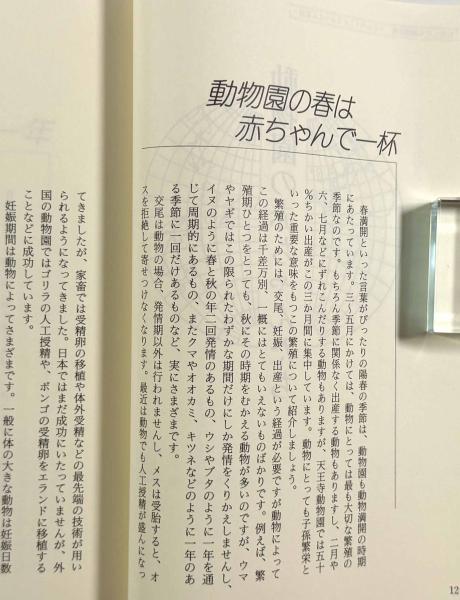 動物園の春は
赤ちゃんで一杯
春満開といった言葉がぴったりの陽春の季節は、動物園も動物満開の時期
にあたっています。三〜五月にかけては、動物にとっては最も大切な繁殖の
季節なのです。もちろん季節に関係なく出産する動物もありますし、二月や
六、七月などにずれこんだりする動物もありますが、天王寺動物園では五十
%ちかい出産がこの三か月間に集中しています。動物にとっても子孫繁栄と
いった重要な意味をもつこの繁殖について紹介しましょう。
繁殖のためには、交尾、妊娠、出産という経過が必要ですが動物によって
この経過は千差万別、一概にはとてもいえないものばかりです。例えば、繁
殖期ひとつをとっても、秋にその時期をむかえる動物が多いのですが、ウマ
やヤギではこの限られたわずかな期間だけにしか発情をくりかえしませんし、
イヌのように春と秋の年二回発情のあるもの、ウシやブタのように一年を通
じて周期的にあるもの、またクマやオオカミ、キツネなどのように一年のあ
る季節に一回だけあるものなど、実にさまざまです。
交尾は動物の場合、発情期以外は行われませんし、メスは受胎すると、オ
スを拒絶して寄せつけなくなります。最近は動物でも人工授精が盛んになっ
てきましたが、家畜では受精卵の移植や体外受精などの最先端の技術が用い
られるようになってきました。日本ではまだ成功にいたっていませんが、外
国の動物園ではゴリラの人工授精や、ボンゴの受精卵をエランドに移植する
ことなどに成功しています。
妊娠期間は動物によってさまざまです。一般に体の大きな動物は妊娠日数
12